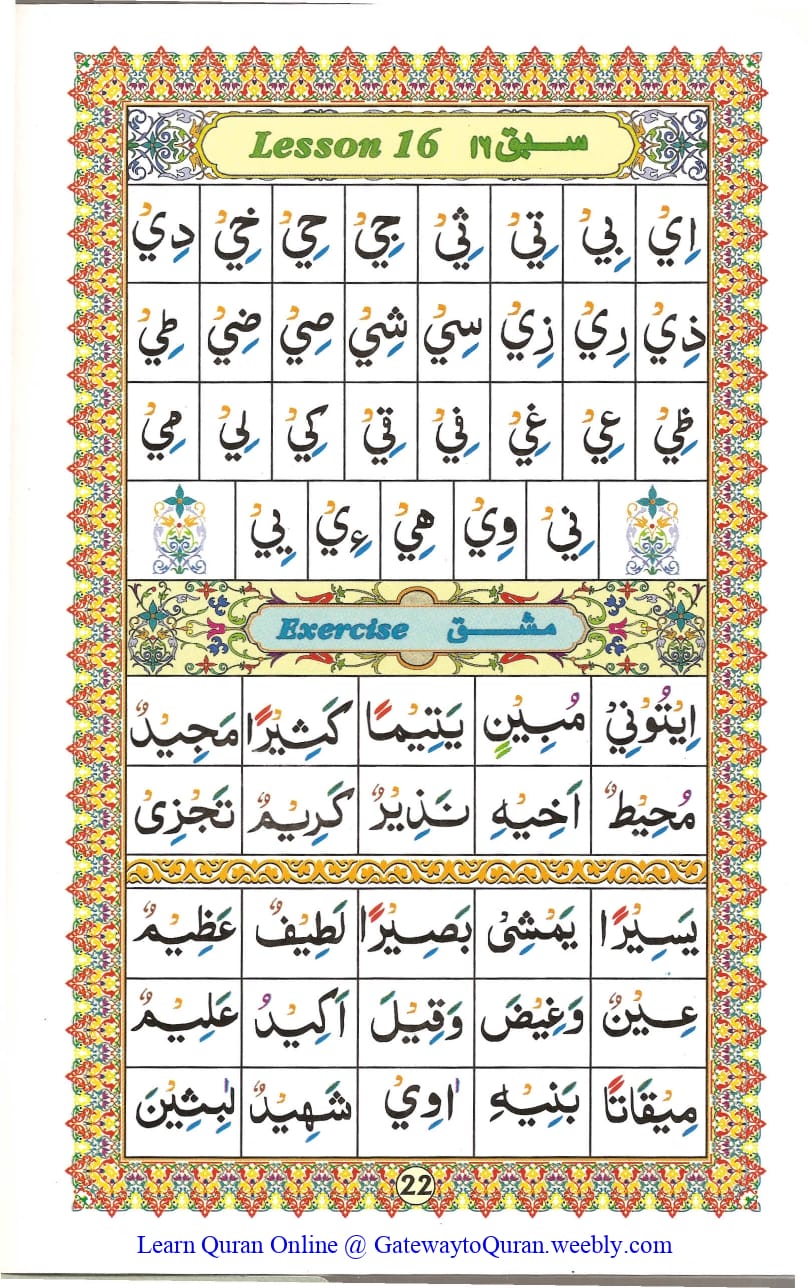 Lesson 16 سبق ١٦
اِيْ بِيْ تِيْ ثِيْ جِيْ حِيْ خِيْ دِيْ
ذِيْ رِيْ زِيْ سِيْ شِيْ صِيْ ضِيْ طِيْ
ظِيْ عِيْ غِيْ فِيْ قِيْ كِيْ لِيْ مِيْ
نِيْ وِيْ هِيْ ءِيْ يِيْ
Exercise مشق
اِيْتُوْنِيْ مُبِيْنٍ يَتِيْمًا كَثِيْرًا مَجِيْدٌ
مُحِيْطٌ اَخِيْهِ نَذِيْرٌ كَرِيْمٌ تَجْزِىْ
يَسِيْرًا يَمْشِىْ بَصِيْرًا لَطِيْفٌ عَظِيْمٌ
عِيْنٌ وَغِيْضَ وَقِيْلَ اَكِيْدُ عَلِيْمٌ
مِيْقَاتًا بَنِيْهِ اٰوِيْ شَهِيْدٌ لٰبِثِيْنَ
22
Learn Quran Online @ GatewaytoQuran.weebly.com